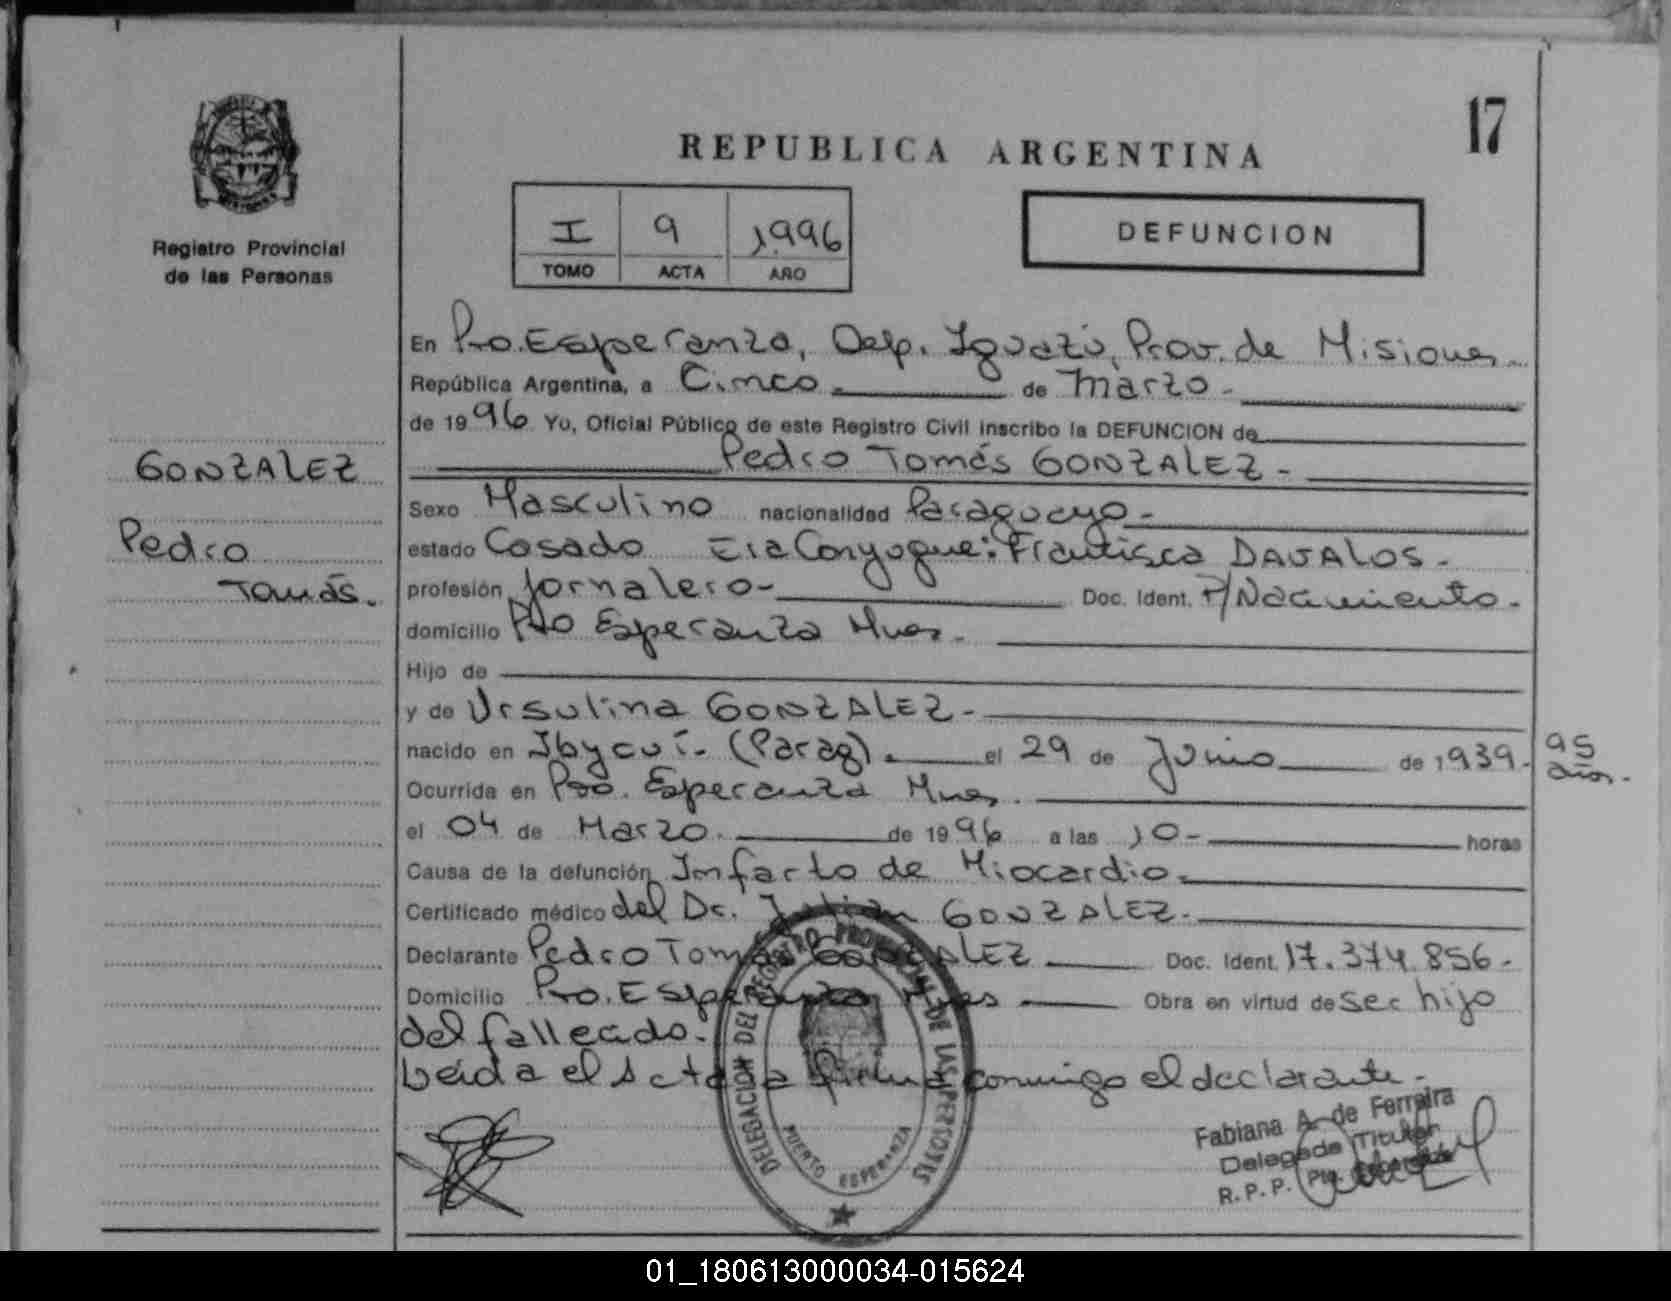 17
REPUBLICA ARGENTINA
Registro Provincial
de las Personas
I 9 1996
TOMO ACTA AÑO
DEFUNCION
En Pto. Esperanza, Dep. Iguazú, Prov. de Misiones
República Argentina, a Cinco de Marzo
de 1996 Yo, Oficial Público de este Registro Civil inscribo la DEFUNCION de
GONZALEZ
Pedro Tomás GONZALEZ
Sexo Masculino nacionalidad Paraguayo
Pedro
estado Casado Era Conyogue: Francisca DAVALOS
Tomás.
profesión Jornalero Doc. Ident. P/Nacimiento.
domicilio Pto Esperanza Mnes.
Hijo de
y de Ursulina GONZALEZ
nacido en Ibycuí (Parag). el 29 de Junio de 1939.
95
años.
Ocurrida en Pto. Esperanza Mnes.
el 04 de Marzo. de 1996 a las 10 horas
Causa de la defunción Infarto de Miocardio.
Certificado médico del Dr. Julián GONZALEZ.
Declarante Pedro Tomás GONZALEZ Doc. Ident. 17.374.856
Domicilio Pto. Esperanza Mnes Obra en virtud de ser hijo
del fallecido.
Leída el Acta la firma conmigo el declarante.
DELEGACION DEL REGISTRO PROVINCIAL DE LAS PERSONAS
PUERTO ESPERANZA
Fabiana A. de Ferreira
Delegada Titular
R.P.P. Pto. Esperanza
01_180613000034-015624